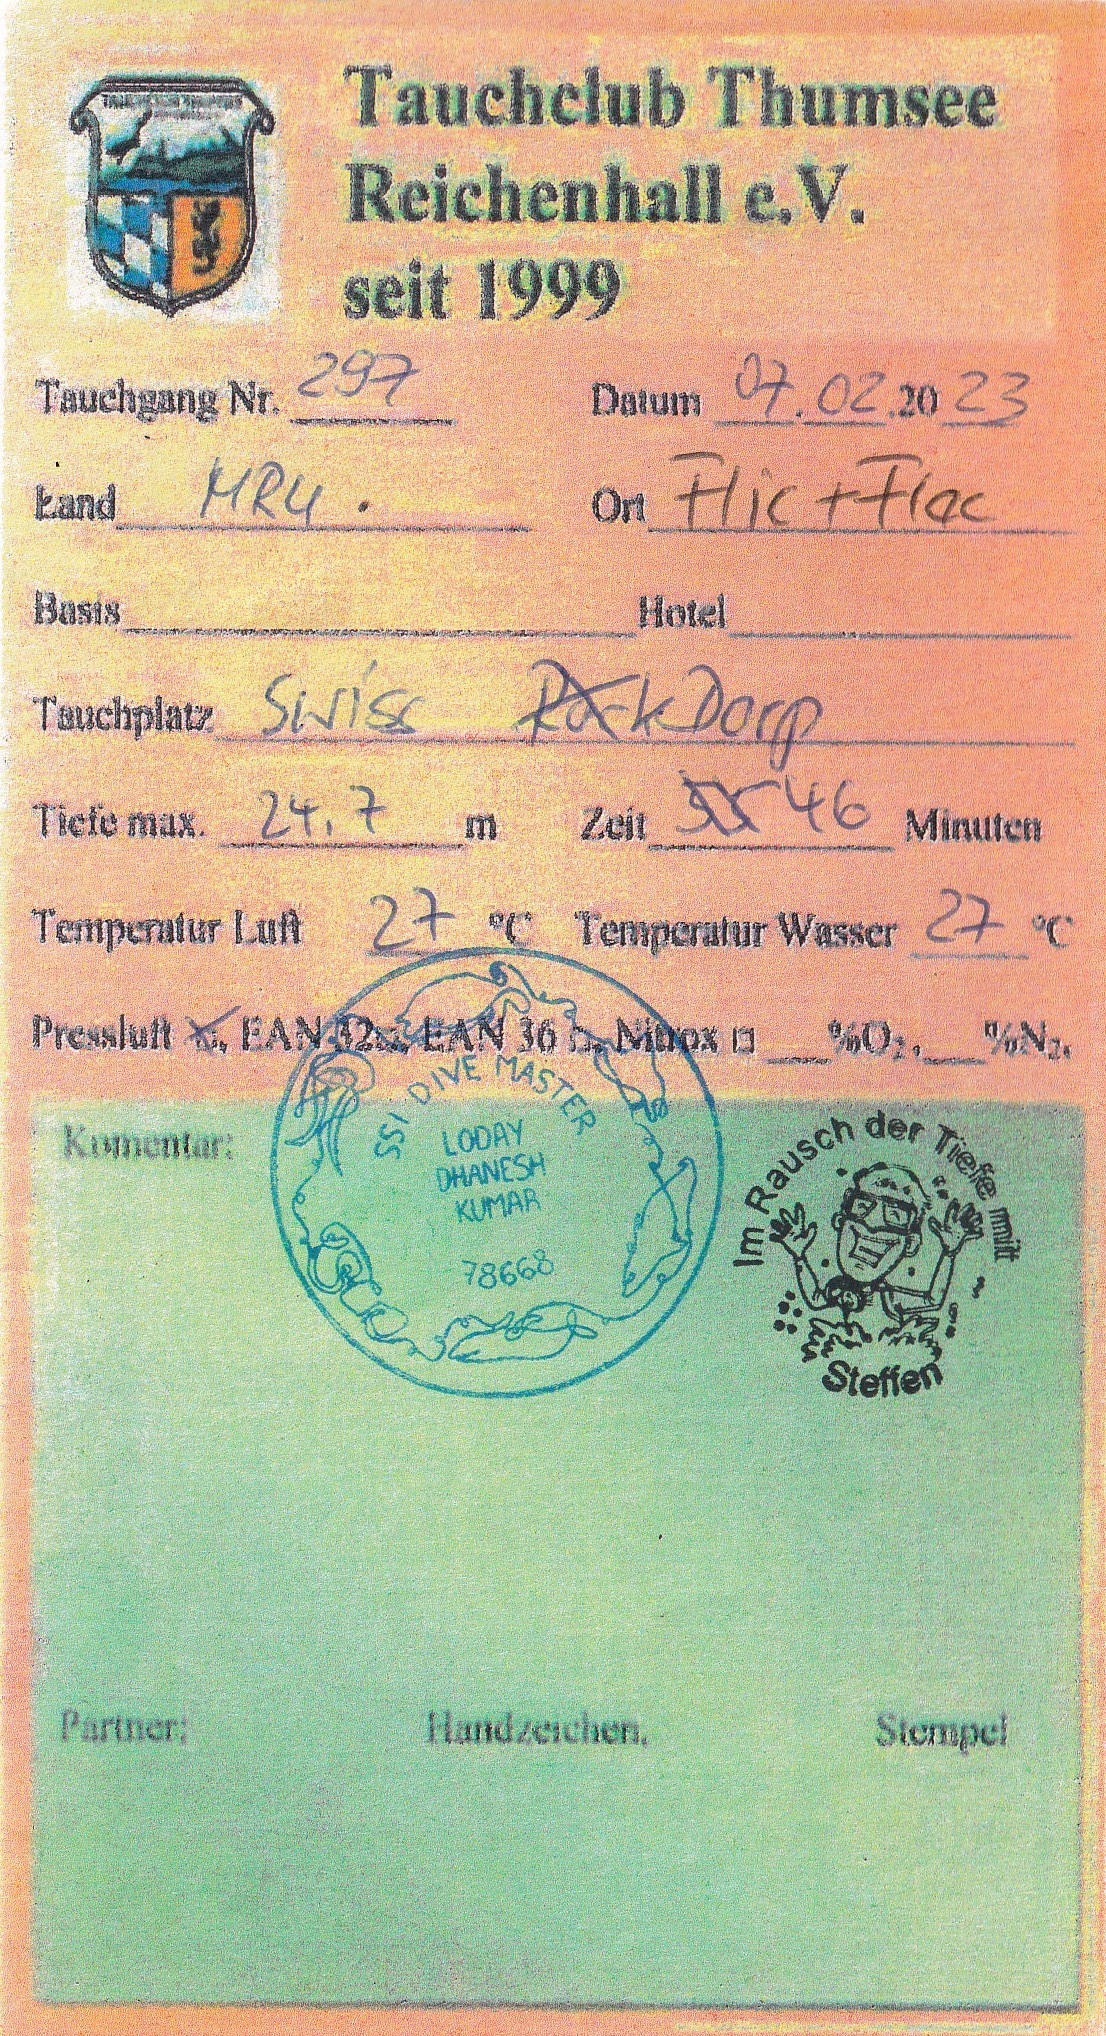 Tauchclub Thumsee
Reichenhall e.V.
seit 1999
Tauchgang Nr. 297 Datum 07.02.2023
Land MRU. Ort Flic + Flac
Basis Hotel
Tauchplatz Swiss Dorp
Tiefe max. 24,7 m Zeit 46 Minuten
Temperatur Luft 27 °C Temperatur Wasser 27 °C
Pressluft ☒, EAN 32□, EAN 36 □, Nitrox □ ___%O₂,___%N₂,
Komentar:
SSI DIVE MASTER
LODAY
DHANESH
KUMAR
78668
Im Rausch der Tiefe mit
Steffen
Partner: Handzeichen, Stempel